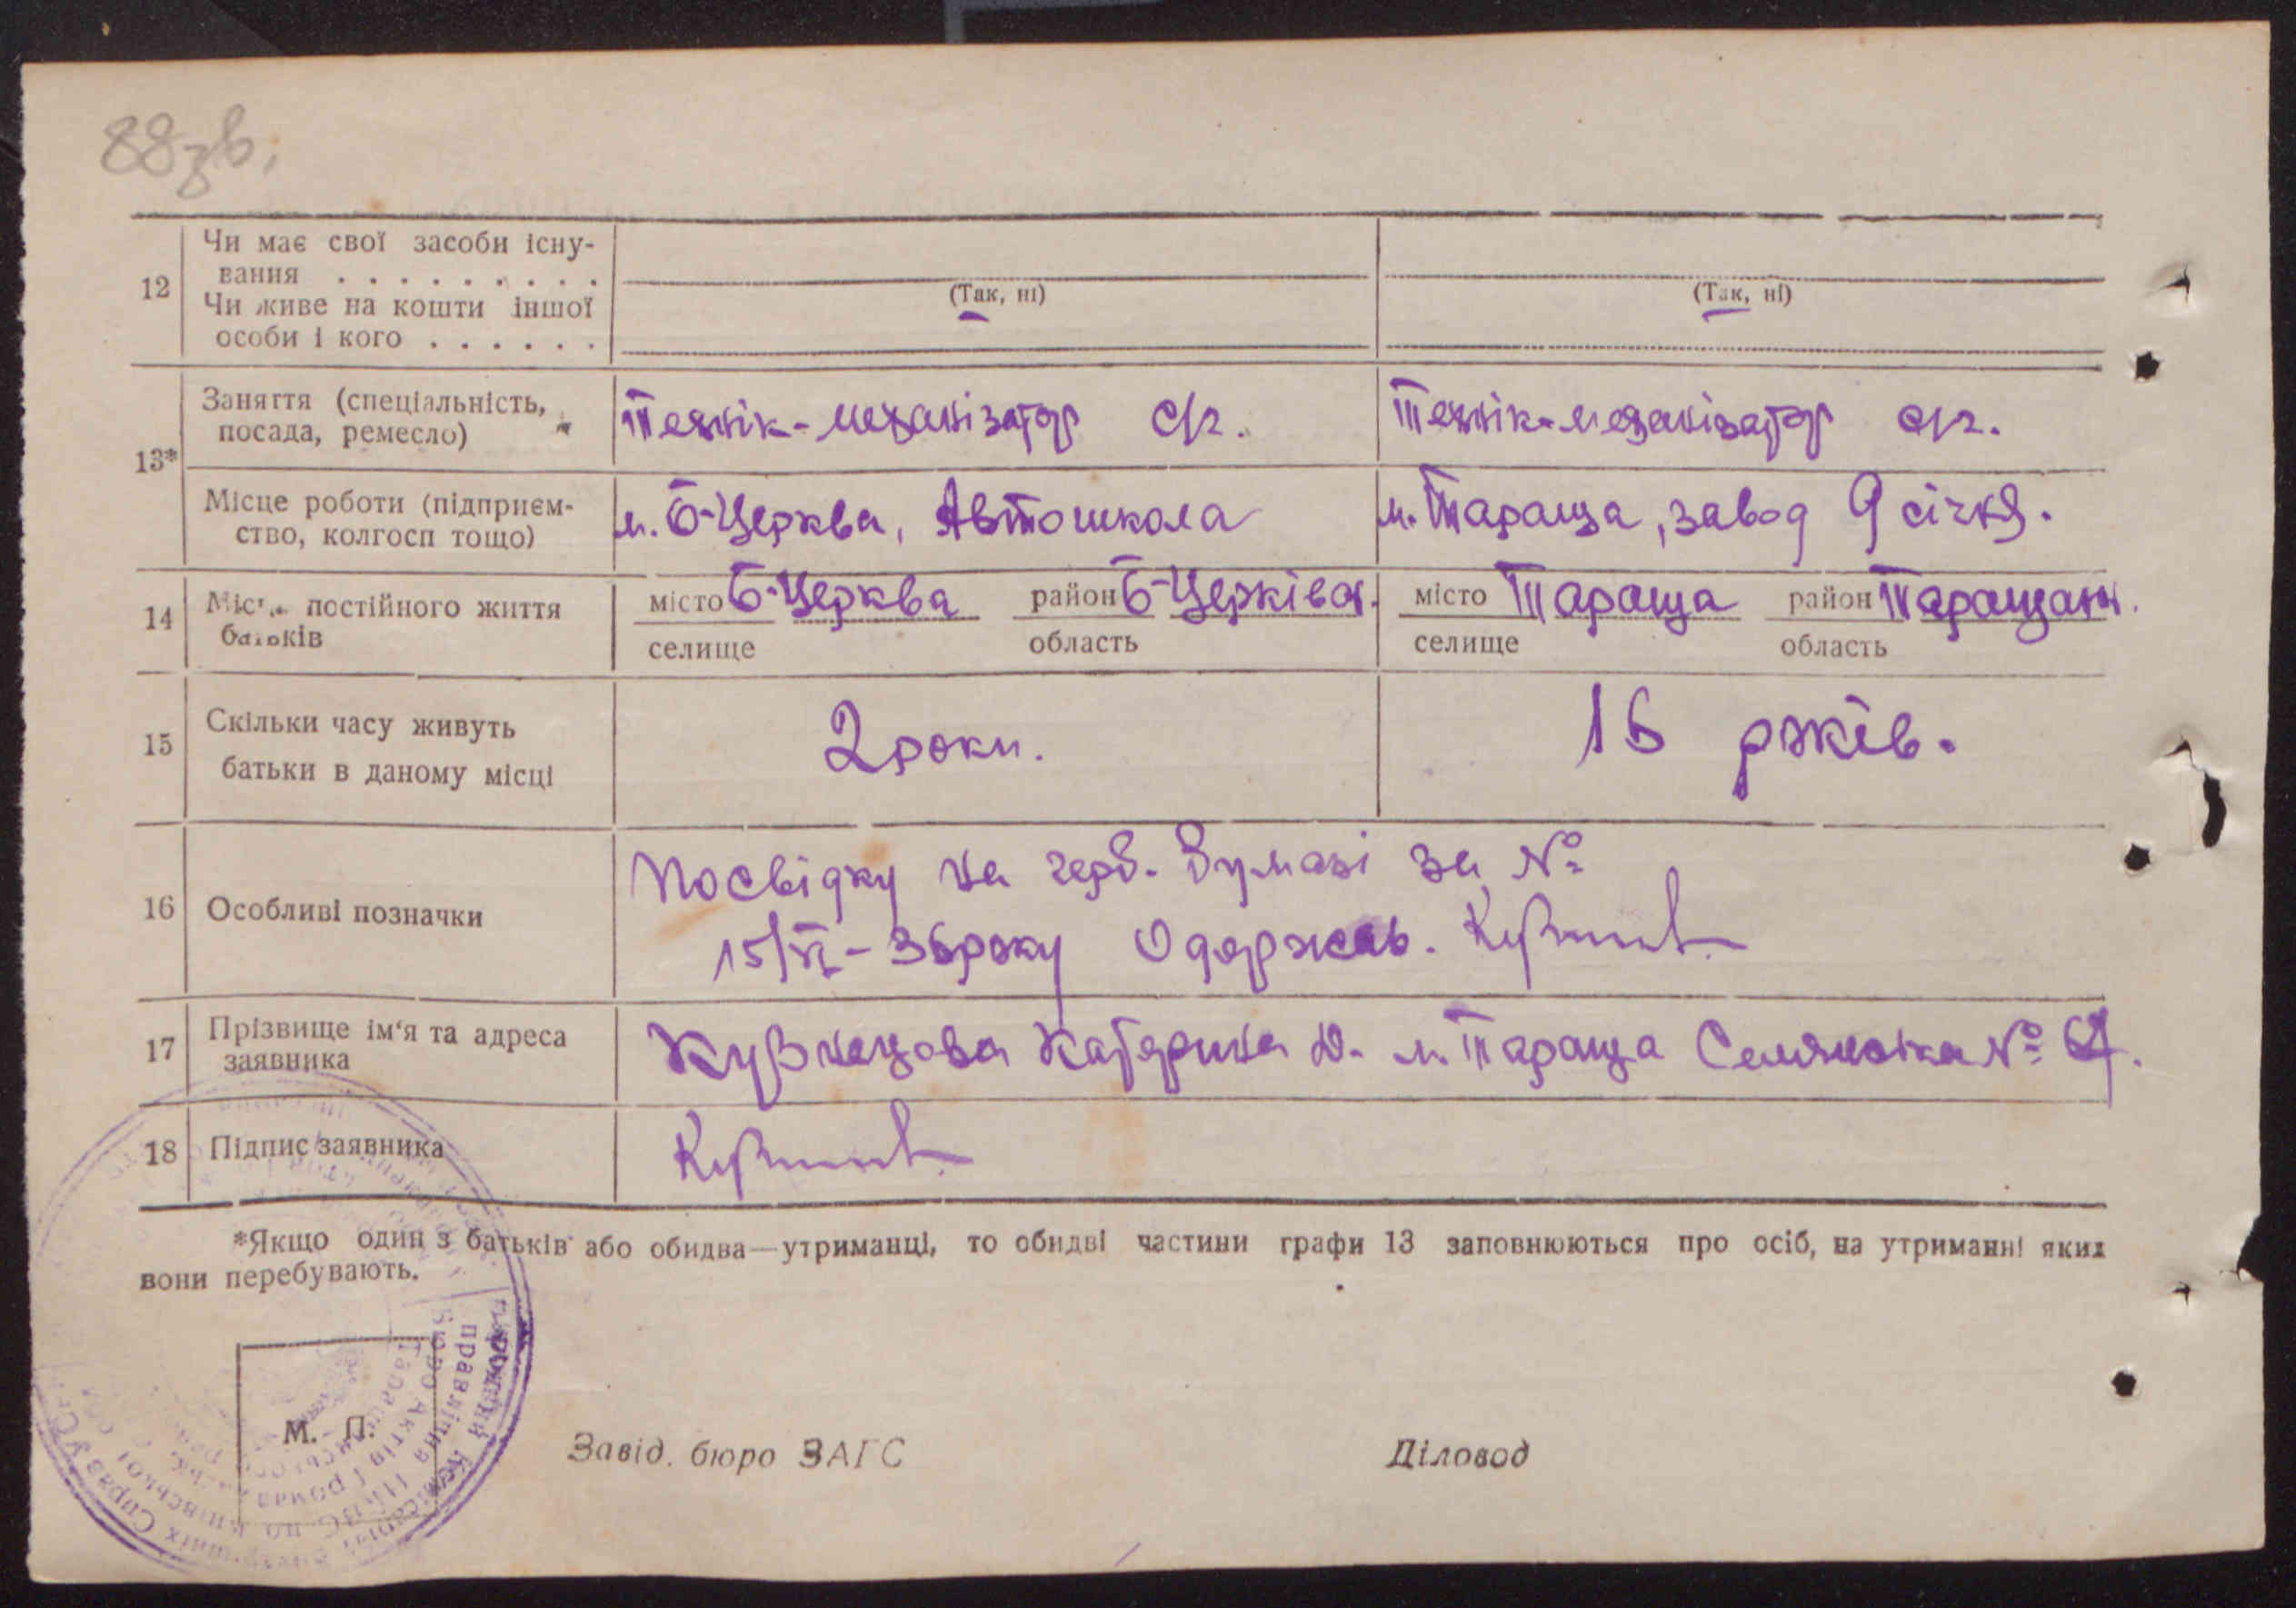 88зв.
12 Чи має свої засоби існування . . . . . . . . .
(Так, ні) (Так, ні)
Чи живе на кошти іншої особи і кого . . . . . .
13* Заняття (спеціальність, посада, ремесло) Технік-механізатор с/г. Технік-механізатор с/г.
Місце роботи (підприємство, колгосп тощо) м. Б-Церква, Автошкола м. Тараща, завод 9 січня.
14 Місце постійного життя батьків місто Б-Церква район Б-Церківськ. місто Тараща район Таращанськ.
селище область селище область
15 Скільки часу живуть батьки в даному місці 2 роки. 16 років.
16 Особливі позначки Посвідку на герб. бумазі за №
15/VI-36 року Одержав.
17 Прізвище ім'я та адреса заявника Кузнецова Катерина м. Тараща №
18 Підпис заявника
*Якщо один з батьків або обидва—утриманці, то обидві частини графи 13 заповнюються про осіб, на утриманні яких
вони перебувають.
М. П.
Завід. бюро ЗАГС Діловод